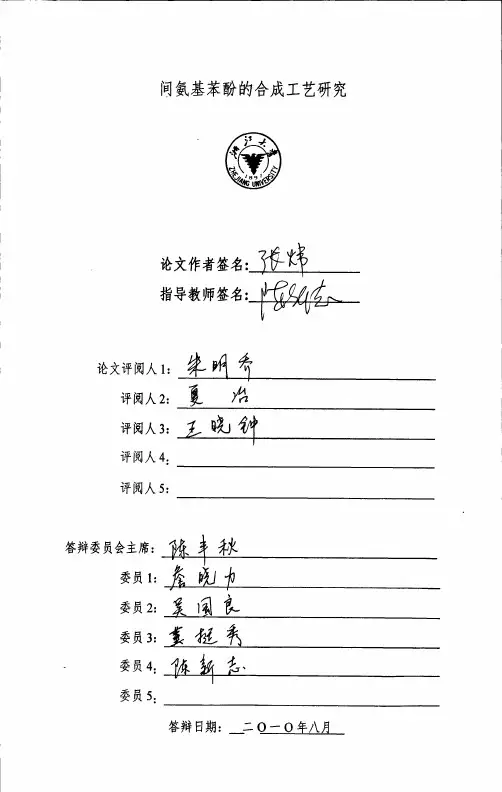 间氨基苯酚的合成工艺研究
浙江大学
1897
ZHEJIANG UNIVERSITY
论文作者签名: 张炜
指导教师签名:
论文评阅人1: 朱明乔
评阅人2: 夏 冶
评阅人3: 王晓钟
评阅人4:
评阅人5:
答辩委员会主席: 陈丰秋
委员1: 詹晓力
委员2: 吴国良
委员3: 龚挺秀
委员4: 陈新志
委员5:
答辩日期: 二〇一〇年八月